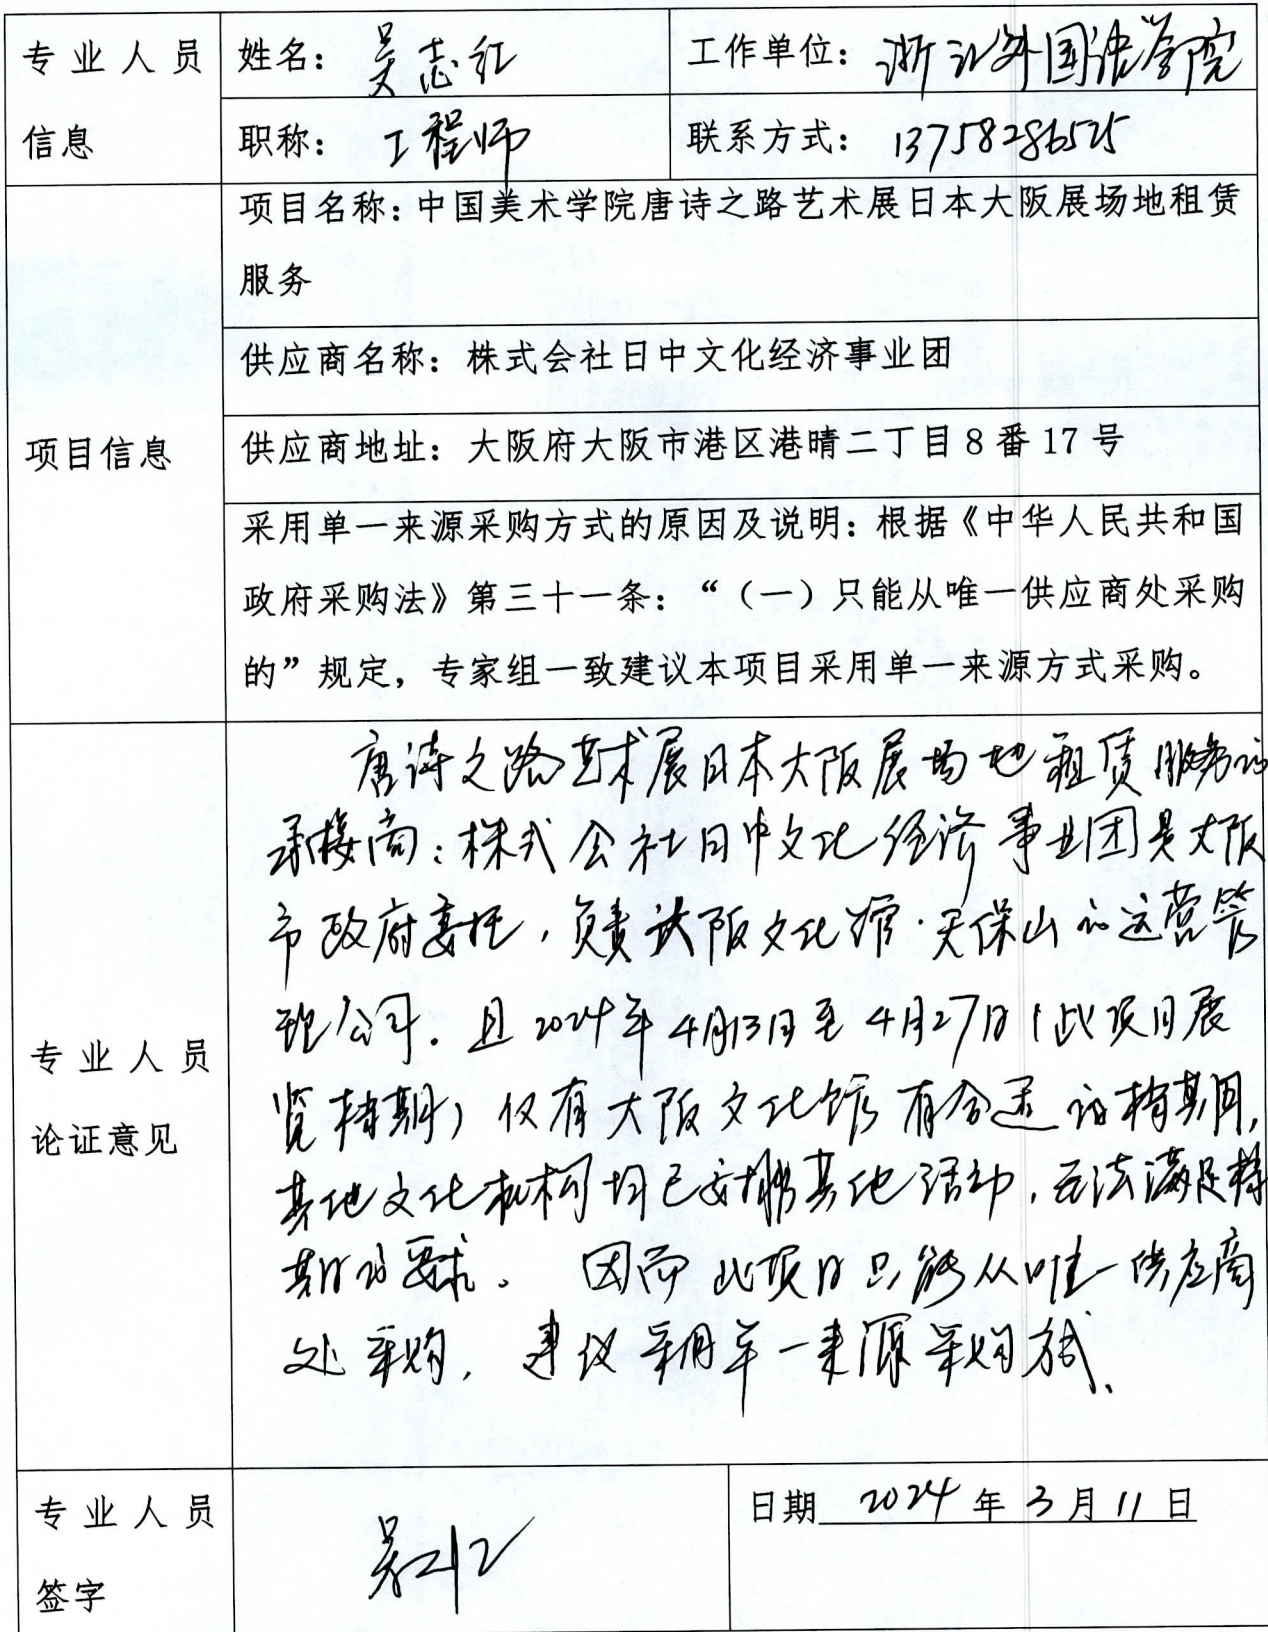 专业人员
信息
姓名：吴志红
工作单位：浙江外国语学院
职称：工程师
联系方式：13758286525
项目信息
项目名称：中国美术学院唐诗之路艺术展日本大阪展场地租赁
服务
供应商名称：株式会社日中文化经济事业团
供应商地址：大阪府大阪市港区港晴二丁目8番17号
采用单一来源采购方式的原因及说明：根据《中华人民共和国
政府采购法》第三十一条：“（一）只能从唯一供应商处采购
的”规定，专家组一致建议本项目采用单一来源方式采购。
专业人员
论证意见
唐诗之路艺术展日本大阪展场地租赁服务的
承接商：株式会社日中文化经济事业团是大阪
市政府委托，负责大阪文化馆·天保山的运营管
理公司。且2024年4月13日至4月27日（此项目展
览档期）仅有大阪文化馆有合适的档期，
其他文化机构均已安排其他活动，无法满足档
期的要求。因而此项目只能从唯一供应商
处采购，建议采用单一来源采购方式。
专业人员
签字
日期 2024年3月11日